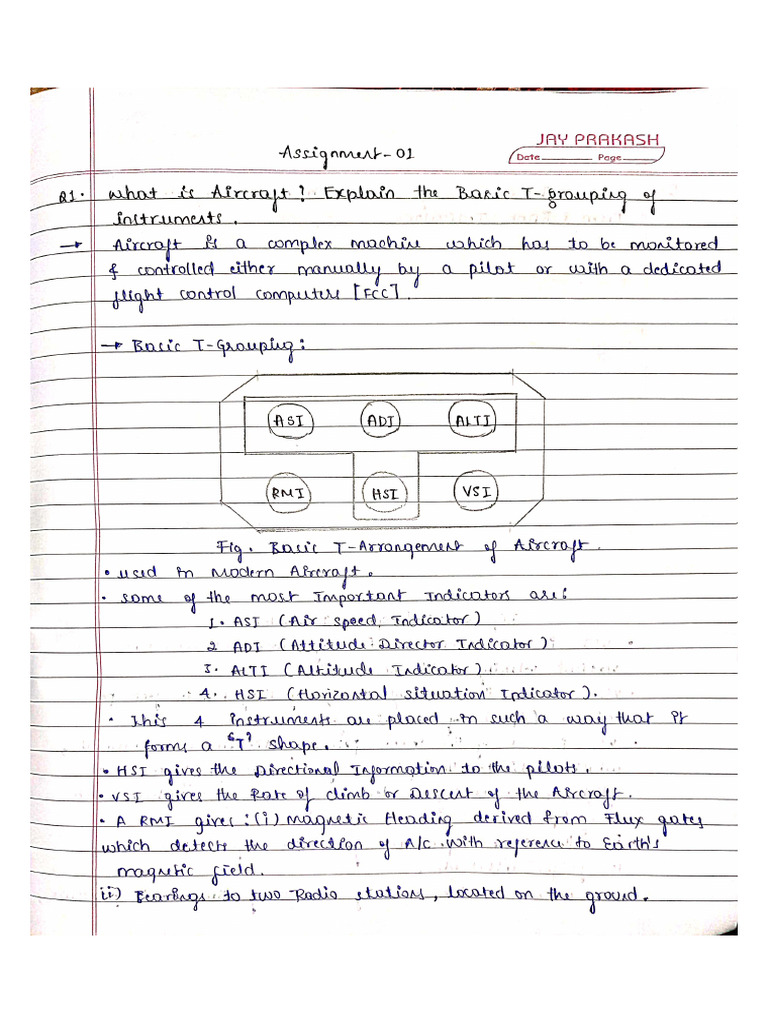 JAY PRAKASH
Assignment-01
Date Page
Q1. What is Aircraft? Explain the Basic T-grouping of
instruments.
→ Aircraft is a complex machine which has to be monitored
& controlled either manually by a pilot or with a dedicated
flight control computers [FCC].
→ Basic T-Grouping:
ASI ADI ALTI
RMI HSI VSI
Fig. Basic T-Arrangement of Aircraft.
• used in modern Aircraft.
• some of the most Important Indicators are:
1. ASI (Air speed, Indicator)
2 ADI (Attitude Director Indicator)
3. ALTI (Altitude Indicator)
4. HSI (Horizontal situation Indicator).
• This 4 instruments are placed in such a way that it
forms a 'T' shape.
• HSI gives the Directional Information to the pilots.
• VSI gives the Rate of climb or Descent of the Aircraft.
• A RMI gives: (i) magnetic Heading derived from Flux gates
which detects the direction of A/C with reference to Earth's
magnetic field.
ii) Bearings to two Radio stations, located on the ground.